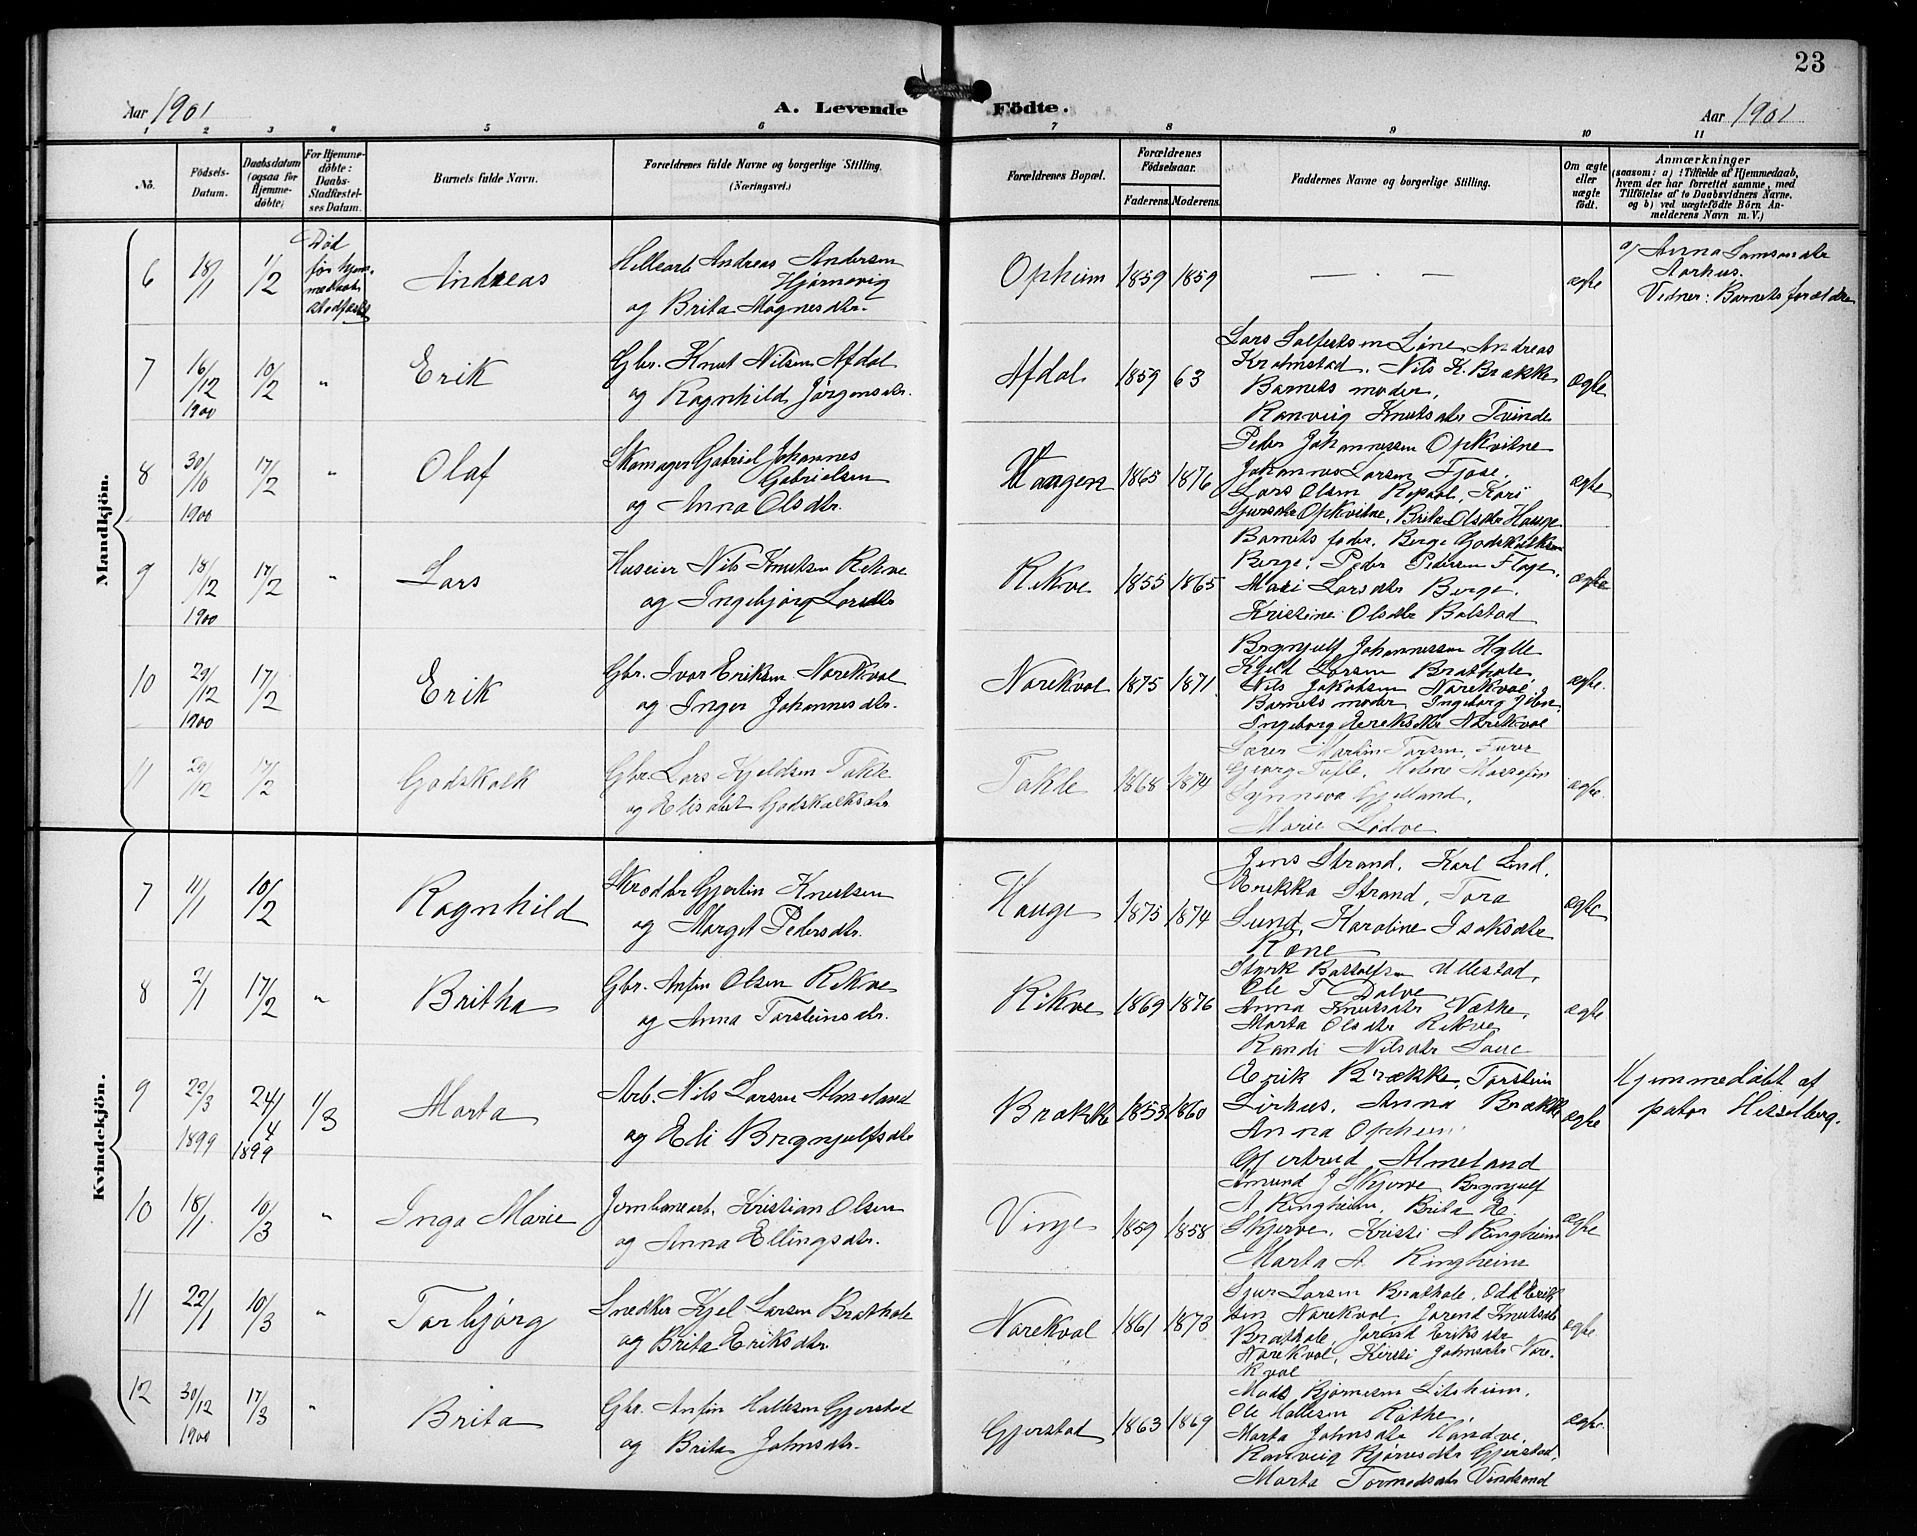 23
Aar 1901
A. Levende Födte.
Aar 1901
1 2 3 4 5 6 7 8 9 10 11
No.
Födsels-
Datum.
Daabsdatum
(ogsaa for
Hjemme-
döbte;
For Hjemme-
döbte:
Daabs-
Stadfæstel-
ses Datum.
Barnets fulde Navn.
Forældrenes fulde Navne og borgerlige Stilling.
(Næringsvei.)
Forældrenes Bopæl.
Forældrenes
Födselsaar.
Faderens. Moderens.
Faddernes Navne og borgerlige Stilling.
Om ægte
eller
uægte
födt.
Anmærkninger
(saasom: a) i Tilfælde af Hjemmedaab,
hvem der har forrettet samme, med
Tilföielse af to Daabsvidners Navne.
og b) ved uægtefödte Börn An-
melderens Navn m. V.)
Mandkjön.
6 18/1 1/2
Død
før hjem-
medaab
stadfæst
Andreas
Andreas Andersen
Hjørnevig
og Brita Magnesdtr.
Opheim 1859 1859 — . — ægte
a/ Anna Samsonsdtr
Aarhus.
Vidner: Barnets forældre
7 16/12 1900 10/2 "
Erik
Gbr. Knut Nilsen Afdal
og Ragnhild Jørgensdtr.
Afdal 1859 63
Lars Løne, Andreas
Nils K. Brække
Barnets moder,
Ranveig Knutsdtr Tvinde
ægte
8 30/10 1900 17/2 "
Olaf
Skomager Gabriel Johannes
Gabrielsen
og Anna Olsdtr.
Vangen 1865 1876
Peder Johannessen Opkvitne
Johannes Larsen Fjose.
Lars Olsen Kari
Sjursdtr Opkvitne, Brita Olsdtr Hauge
ægte
9 18/12 1900 17/2 "
Lars
Huseier Nils Knutsen Rekve
og Ingebjørg Larsdtr
Rekve 1855 1865
Barnets fader, Berge Godskalksen
Berge, Peder Pedersen
Mari Larsdtr Berge.
Kristine Olsdtr Bolstad
ægte
10 29/12 1900 17/2
Erik
Gbr. Ivar Eriksen Norekval
og Inger Johannesdtr.
Norekval 1875 1871
Brynjulf Johannessen Hylle
Kjeld Larsen Brathole,
Nils Jakobsen Norekval
Barnets moder Ingeborg
Ingeborg Eriksdtr Norekval
ægte.
11 29/12 17/2
Godskalk
Gbr. Lars Kjeldsen Takle
og Elisabet Godskalksdtr
Takle 1868 1874
Lærer Martin Larsen, Furer
Georg Helene
Synneva Gjelland,
Marie Lødve
ægte.
Kvindekjön.
7 11/1 10/2
Ragnhild
Skrædder Gjertin Knutsen
og Marget Pedersdtr.
Hauge 1875 1874
Jens Strand, Karl Lund,
Erikka Strand, Tora
Lund, Karoline Isaksdtr
Rone
ægte
8 2/1 17/2 "
Britha
Gbr. Anfin Olsen Rekve
og Anna Torsteinsdtr.
Rekve 1869 1876
Styrk Ullestad,
Ole T Dalve
Anna Knutsdtr Væthe,
Marta Olsdtr Rekve
Randi Nilsdtr Saue
ægte
9 22/3 1899 24/4 1899 1/3
Marta
Arb. Nils Larsen Almeland
og Eli Brynjulfsdtr
Brække 1855 1860
Erik Brække, Torstein
Lirhus, Anna Brække
Anna Opheim
Gjertrud Almeland
ægte
Hjemmedøbt af
pator Hesselberg.
10 18/1 10/3 "
Inga Marie
Jernbanearb. Kristian Olsen
og Anna Ellingsdtr.
Vinje 1859 1858
Amund J Skjerve Brynjulf
A Ringheim, Brita E.
Skjerve, Kristi A Ringheim
Marta A Ringheim
ægte
11 22/1 10/3 "
Torbjørg
Snedker Kjel Larsen Brathole
og Brita Eriksdtr.
Norekval 1861 1873
Sjur Larsen Brathole, Odd Erik
sen Norekval, Jorend Knutsdtr
Brathole, Jorend Eriksdtr
Norekval, Kirsti Johnsdtr Nore-
kval
ægte.
12 30/12 1900 17/3 "
Brita
Gbr. Anfin Hallesen Gjerstad
og Brita Johnsdtr.
Gjerstad 1863 1869
Mads Bjørnesen Litsheim,
Ole Hallesen Røthe,
Marta Johnsdtr
Ranveig Bjørnsdtr Gjerstad,
Marta Tormodsdtr Vindsand
ægte.